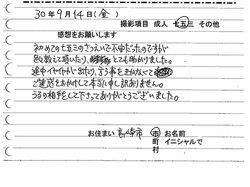 30年9月14日(金)
撮影項目 成人 七五三 その他
感想をお願いします
初めての七五三のさつえいで不安だったのですが
色々教えて頂いたり、とても助かりました。
途中イヤイヤが出たり、言う事をきかなくて
ご迷惑をおかけして本当に申し訳ありません。
うちの相手をして下さってありがとうございました。
お住まい 市 お名前
町 イニシャルで
村